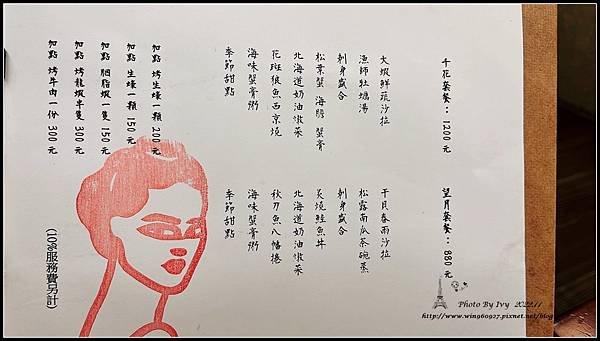 千花套餐：1200元
大蝦鮮蔬沙拉
漁師牡蠣湯
刺身盛合
松葉蟹 海膽 蟹膏
北海道奶油燉菜
花斑狼魚西京燒
海味蟹膏粥
季節甜點
望月套餐：880元
干貝春雨沙拉
松露南瓜茶碗蒸
刺身盛合
炙燒鮭魚丼
北海道奶油燉菜
秋刀魚八幡捲
海味蟹膏粥
季節甜點
加點 烤生蠔一顆 200元
加點 生蠔一顆 150元
加點 胭脂蝦一隻 150元
加點 烤龍蝦半隻 300元
加點 烤牛肉一份 300元
(10%服務費另計)
Photo By Ivy 2022.11
http://www.win960927.pixnet.net/blog